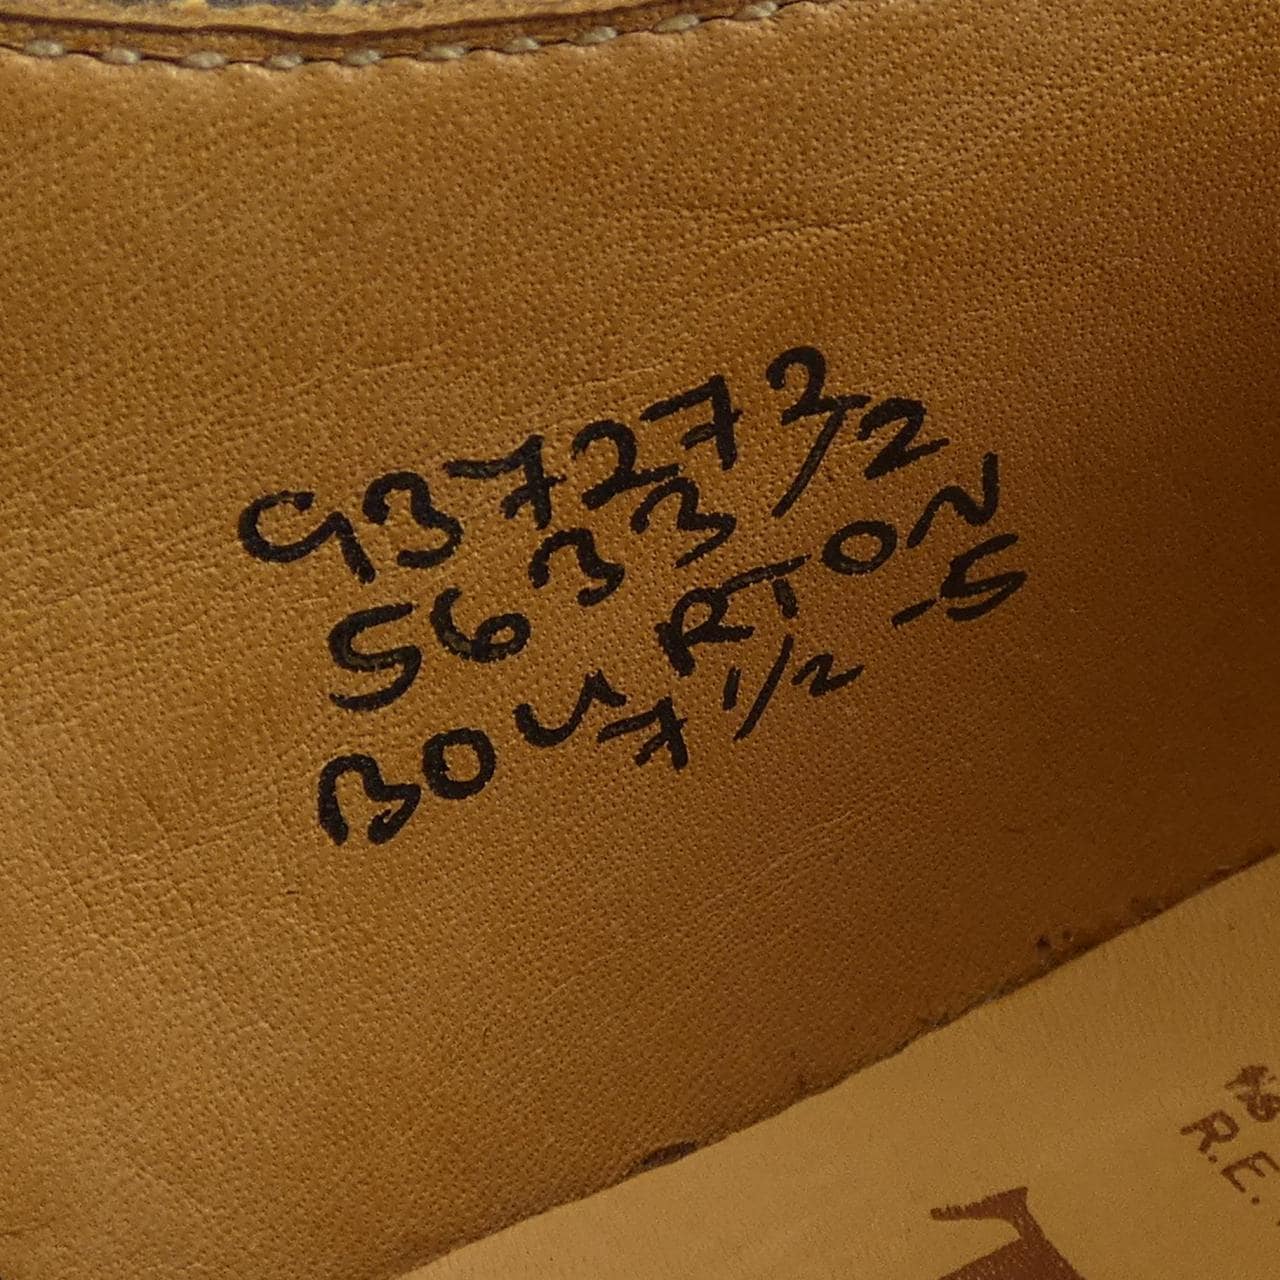 937272
5633/2
BOURTON
7 1/2 -5
R.E.